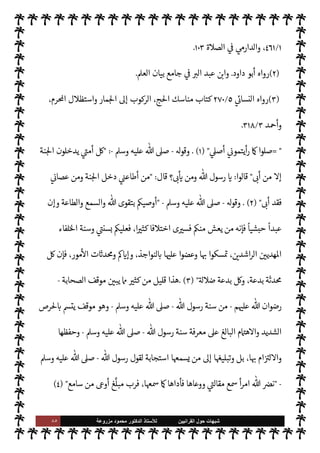 ٤٦١/١، والدارمي في الصلاة ١٠٣.
(٢)رواه أبو داود. وابن عبد البر في جامع بيان العلم.
(٣)رواه النسائي ٢٧٠/٥ كتاب مناسك الحج، الركوب إلى الجمار واستظلال المحرم،
وأحمد ٣١٨/٣.
" =صلوا كما رأيتموني أصلي" (١) . وقوله - صلى الله عليه وسلم -: "كل أمتي يدخلون الجنة
إلا من أبى" قالوا: يا رسول الله ومن يأبى؟ قال: "من أطاعني دخل الجنة ومن عصاني
فقد أبى" (٢) . وقوله - صلى الله عليه وسلم - "أوصيكم بتقوى الله والسمع والطاعة وإن
عبداً حبشياً فإنه من يعش منكم فسيرى اختلافا كثيرا، فعليكم بسنتي وسنة الخلفاء
المهديين الراشدين، تمسكوا بها وعضوا عليها بالنواجذ، وإياكم ومحدثات الأمور، فإن كل
محدثة بدعة، وكل بدعة ضلالة" (٣) .هذا قليل من كثير مما يبين موقف الصحابة -
رضوان الله عليهم - من سنة رسول الله - صلى الله عليه وسلم - وهو موقف يتسم بالحرص
الشديد والاهتمام البالغ على معرفة سنة رسول الله - صلى الله عليه وسلم - وحفظها
والالتزام بها، بل وتبليغها إلى من يسمعها استجابة لقول رسول الله - صلى الله عليه وسلم
- "نضر الله امرأ سمع مقالتي ووعاها فأداها كما سمعها، فرب مبلَّغ أوعى من سامع" (٤)
شبهات حول القرآنيين للأستاذ الدكتور محمود مزروعة ٨٥